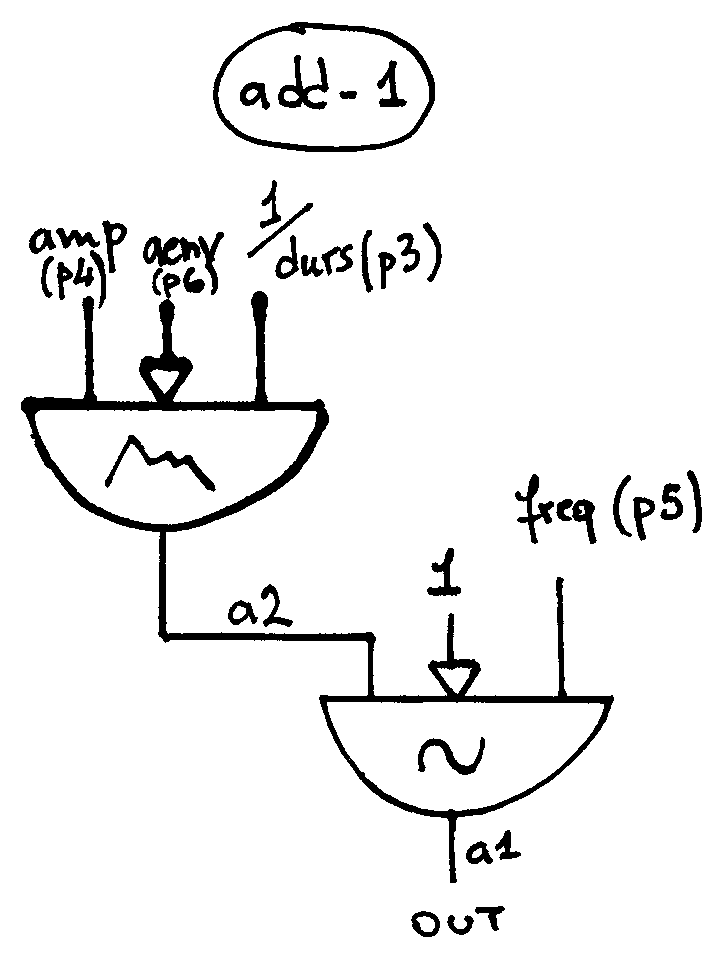 add-1
amp
(p4)
aenv
(p6)
1/durs(p3)
freq (p5)
1
a2
a1
OUT